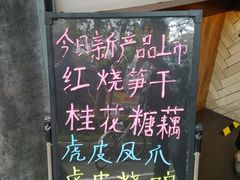 今日新产品上市
红烧笋干
桂花糖藕
虎皮凤爪
虎皮